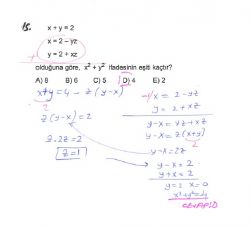 15.
x + y = 2
x = 2 – yz
y = 2 + xz
olduğuna göre, x² + y² ifadesinin eşiti kaçtır?
A) 8 B) 6 C) 5 D) 4 E) 2
x+y = 4 - z(y-x)
2
z(y-x) = 2
z·2z = 2
z = 1
-1/ x = 2 - yz
y = 2 + xz
y-x = yz + xz
y-x = z(x+y)
2
y-x = 2z
y-x = 2
y+x = 2
y = 2 x = 0
x²+y² = 4